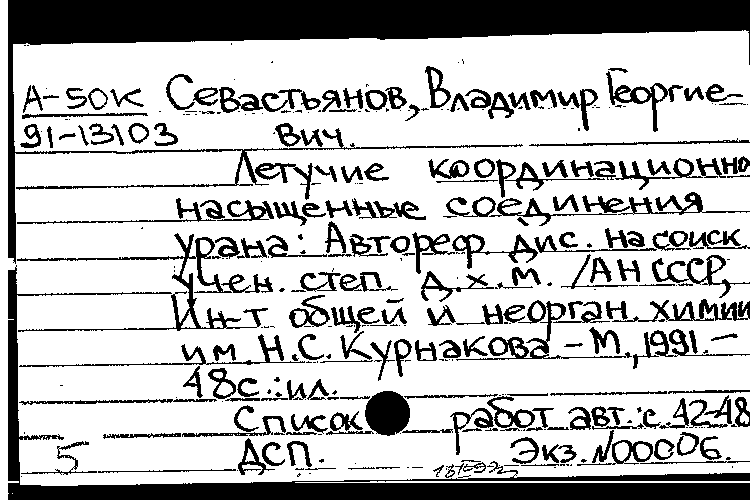 А-50к Севастьянов, Владимир Георгие-
91-13103 вич.
Летучие координационно
насыщенные соединения
урана: Автореф. дис. на соиск.
учен. степ. д.х.м. /АН СССР,
Ин-т общей и неорган. химии
им. Н.С. Курнакова – М., 1991. –
48с.: ил.
Список работ авт.: с. 42-48
5 ДСП. Экз. №00006.